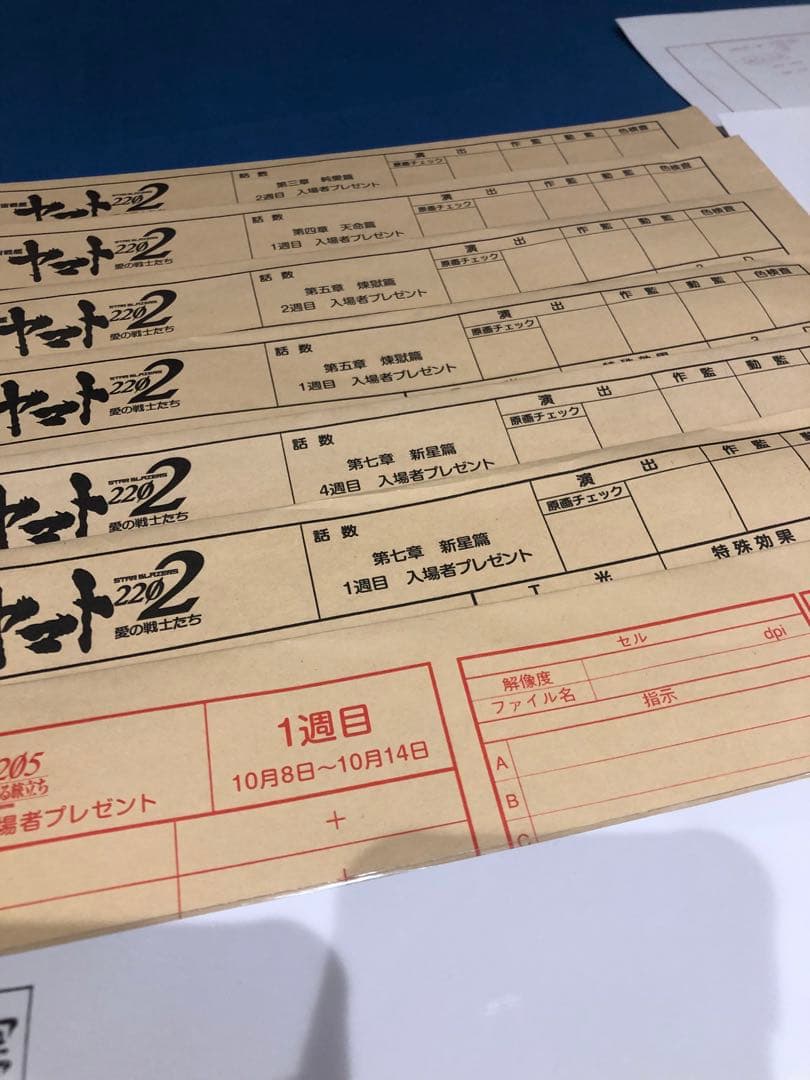 ヤマト
STAR BLAZERS
2202
話数
第三章 純愛篇
2週目 入場者プレゼント
演出
原画チェック
作監
動監
色検査
ヤマト
STAR BLAZERS
2202
愛の戦士たち
話数
第四章 天命篇
1週目 入場者プレゼント
演出
原画チェック
作監
動監
色検査
ヤマト
STAR BLAZERS
2202
愛の戦士たち
話数
第五章 煉獄篇
2週目 入場者プレゼント
演出
原画チェック
作監
動監
色検査
ヤマト
STAR BLAZERS
2202
愛の戦士たち
話数
第五章 煉獄篇
1週目 入場者プレゼント
演出
原画チェック
作監
動監
色検査
特殊効果
ヤマト
STAR BLAZERS
2202
愛の戦士たち
話数
第七章 新星篇
4週目 入場者プレゼント
演出
原画チェック
作監
動監
ヤマト
STAR BLAZERS
2202
愛の戦士たち
話数
第七章 新星篇
1週目 入場者プレゼント
演出
原画チェック
作監
動
T光
特殊効果
205
る旅立ち
場者プレゼント
1週目
10月8日〜10月14日
セル
解像度
dpi
ファイル名
指示
A
B
C